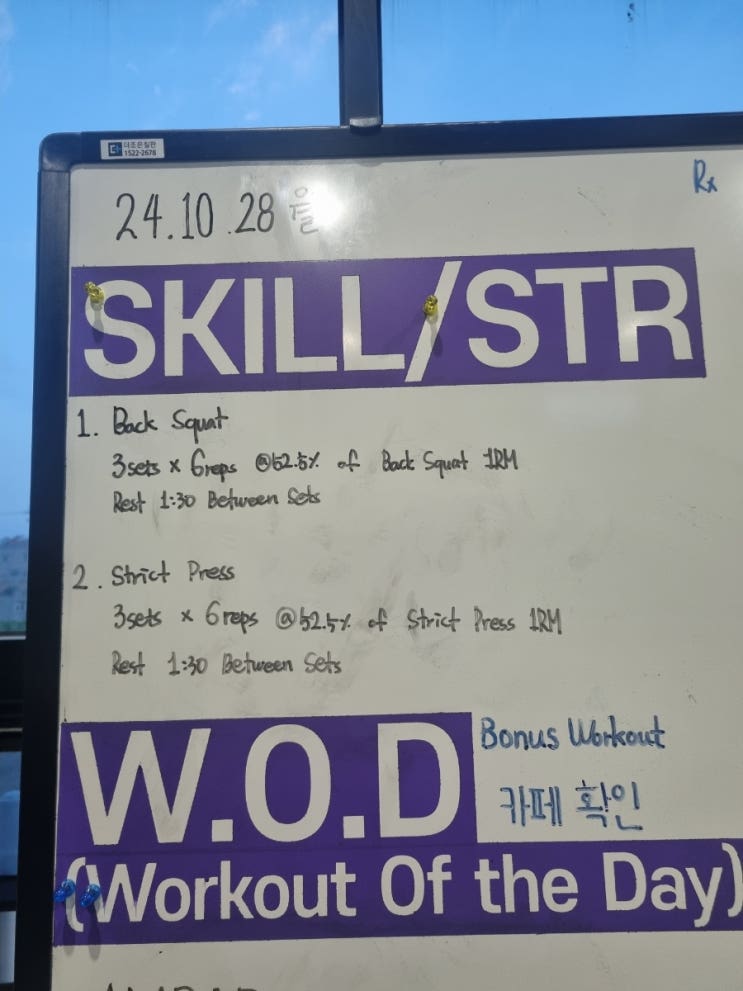 더조은칠판
1522-2678
Rx
24.10.28 월
SKILL/STR
1. Back Squat
3sets x 6reps @52.5% of Back Squat 1RM
Rest 1:30 Between Sets
2. Strict Press
3sets x 6reps @52.5% of Strict Press 1RM
Rest 1:30 Between Sets
W.O.D
Bonus Workout
카페 확인
(Workout Of the Day)